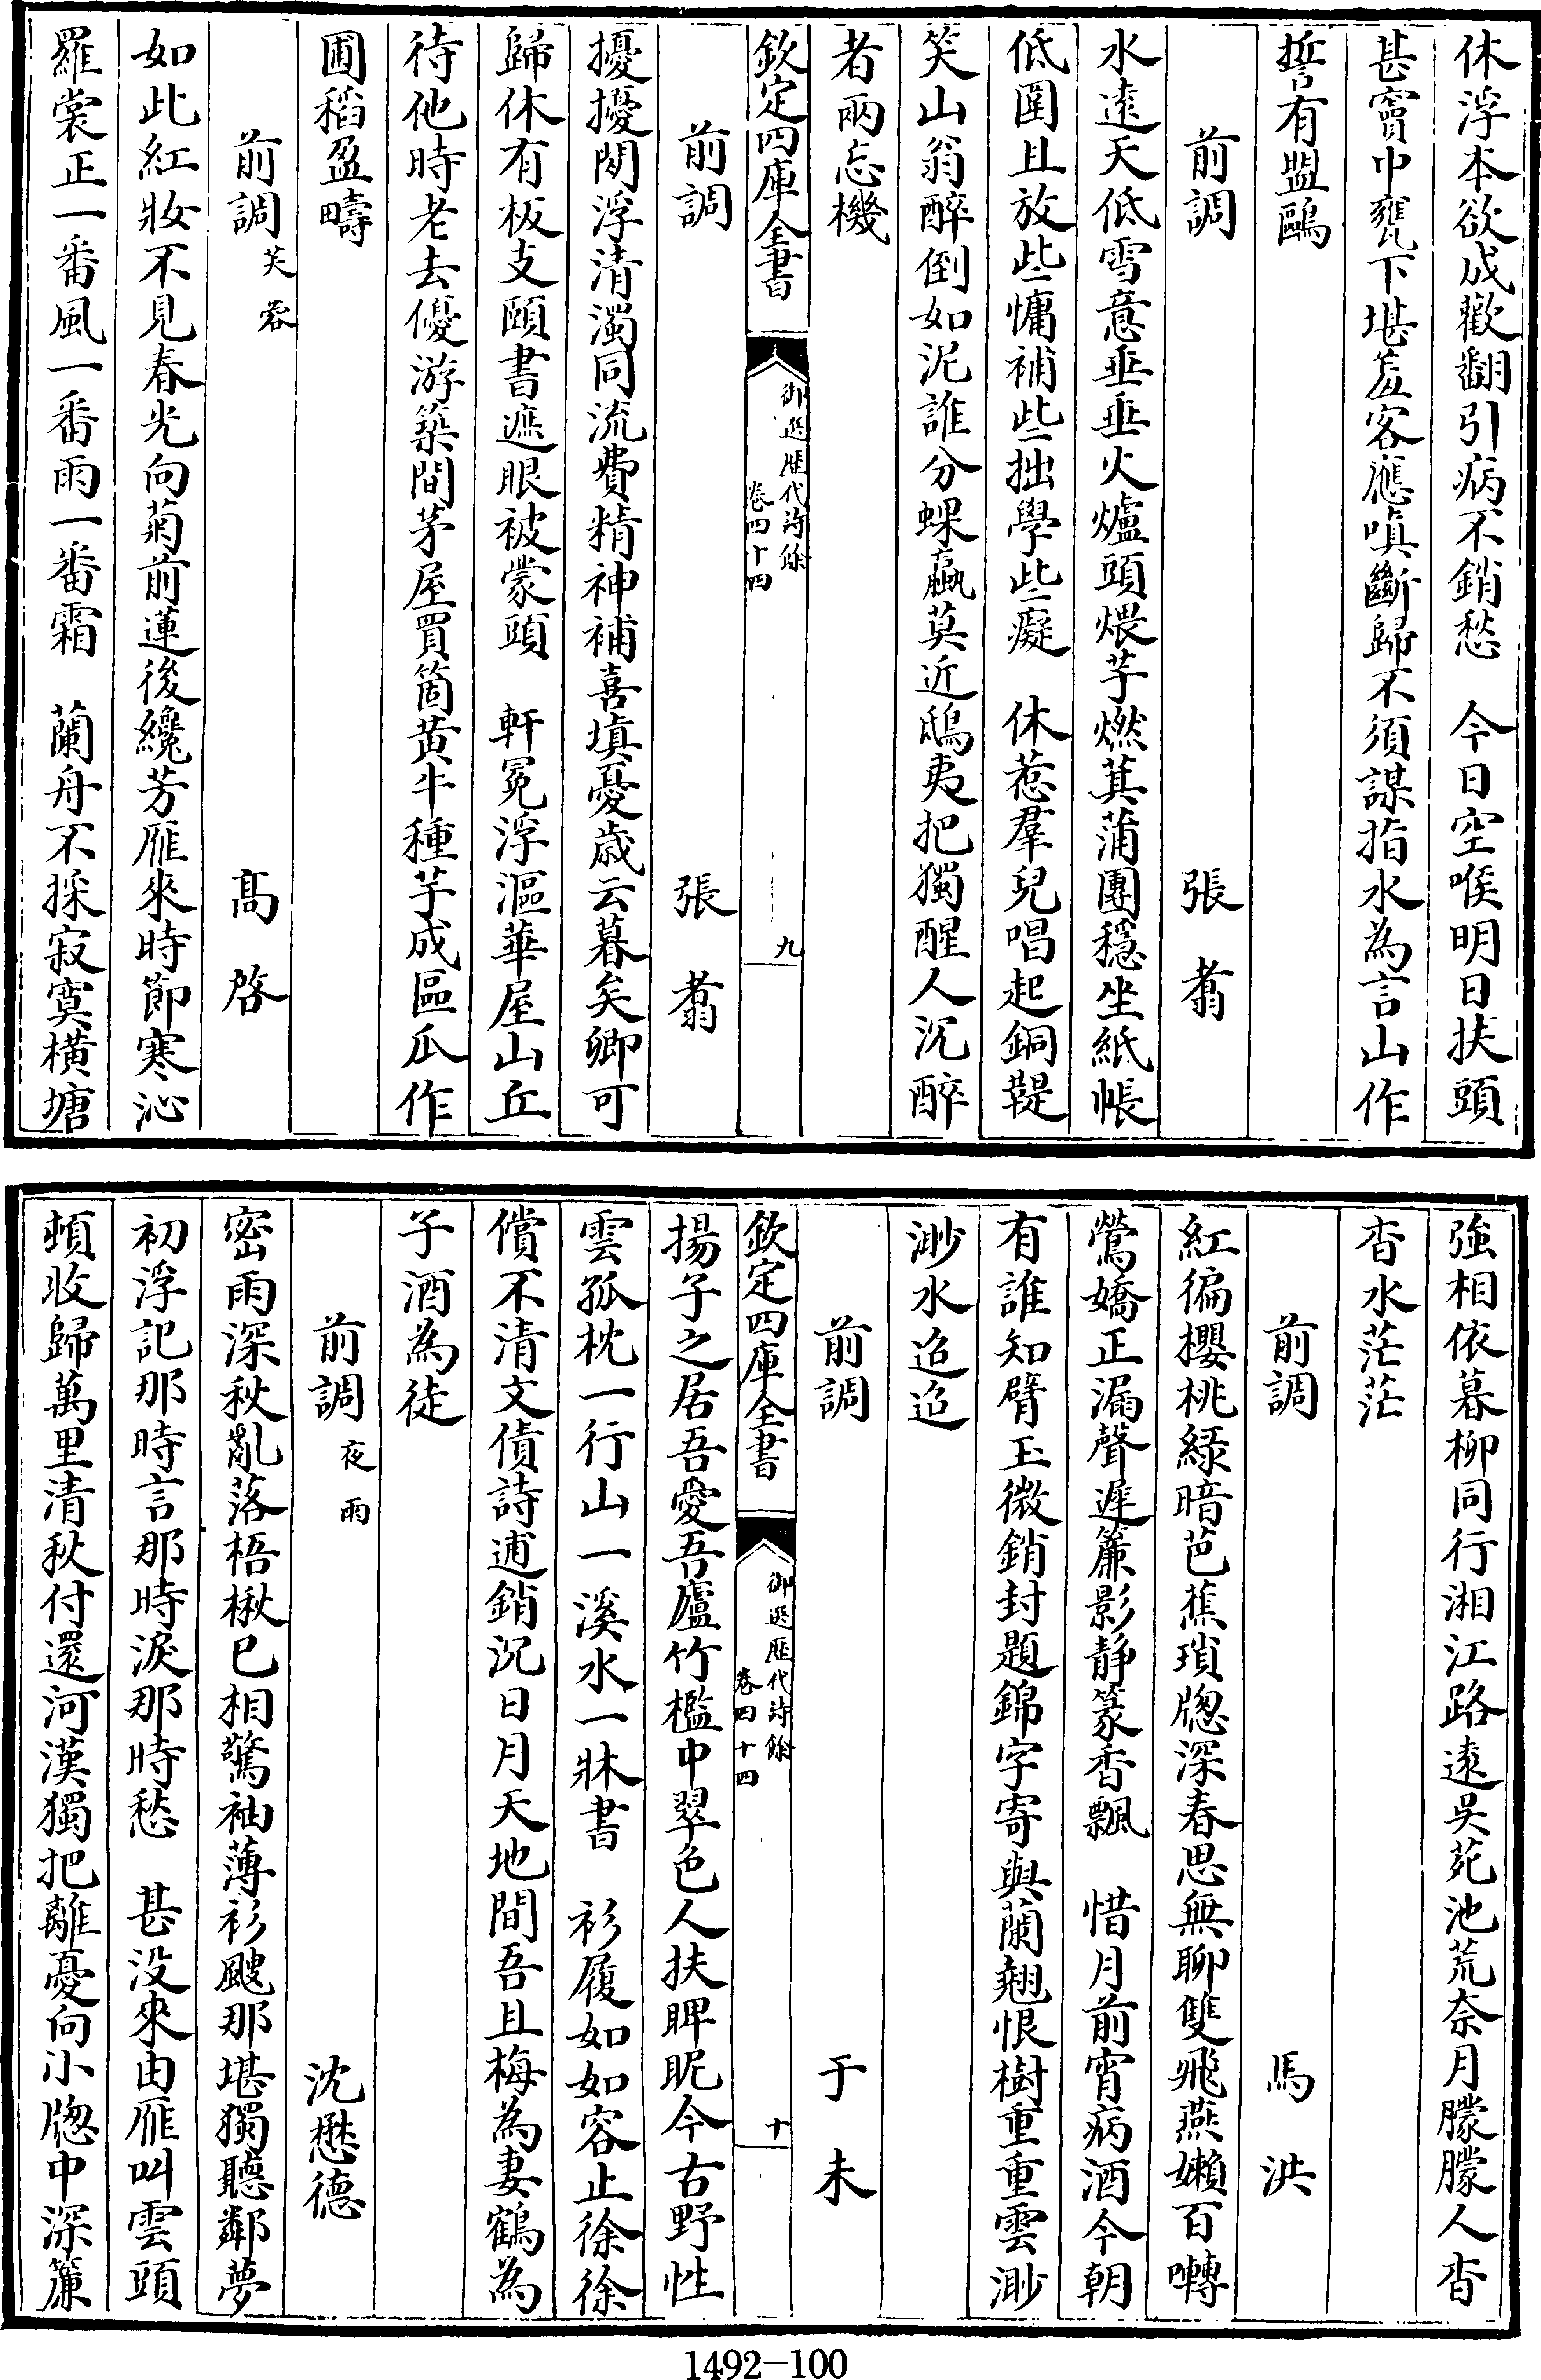 休浮本欲成歡翻引病不銷愁　今日空喉明日扶頭
甚竇中甕下堪羞客應嗔斷歸不須謀指水為言山作
誓有盟鷗
前調　張翥
水遠天低雪意垂垂火爐頭煨芋燃萁蒲團穩坐紙帳
低圍且放些慵補些拙學些癡　休惹羣兒唱起銅鞮
笑山翁醉倒如泥誰分蜾蠃莫近鴟夷把獨醒人沉醉
者兩忘機
欽定四庫全書　御選歷代詩餘　卷四十四　九
前調　張翥
擾擾閻浮清濁同流費精神補喜填憂歲云暮矣卿可
歸休有板支頤書遮眼被蒙頭　軒冕浮漚華屋山丘
待他時老去優游築間茅屋買箇黄牛種芋成區瓜作
圃稻盈疇
前調芙蓉　高啓
如此紅妝不見春光向菊前蓮後纔芳雁來時節寒沁
羅裳正一番風一番雨一番霜　蘭舟不採寂寞横塘
強相依暮柳同行湘江路遠吳苑池荒奈月朦朦人杳
杳水茫茫
前調　馬洪
紅徧櫻桃緑暗芭蕉瑣牎深春思無聊雙飛燕嬾百囀
鶯嬌正漏聲遲簾影靜篆香飄　惜月前宵病酒今朝
有誰知臂玉微銷封題錦字寄與蘭翹恨樹重重雲渺
渺水迢迢
前調　于未
欽定四庫全書　御選歷代詩餘　卷四十四　十
揚子之居吾愛吾廬竹檻中翠色人扶睥睨今古野性
雲孤枕一行山一溪水一牀書　衫履如如容止徐徐
償不清文債詩逋銷沉日月天地間吾且梅為妻鶴為
子酒為徒
前調夜雨　沈懋德
密雨深秋亂落梧楸已相驚袖薄衫颼那堪獨聽鄰夢
初浮記那時言那時淚那時愁　甚没來由雁叫雲頭
頓收歸萬里清秋付還河漢獨把離憂向小牎中深簾
1492—100